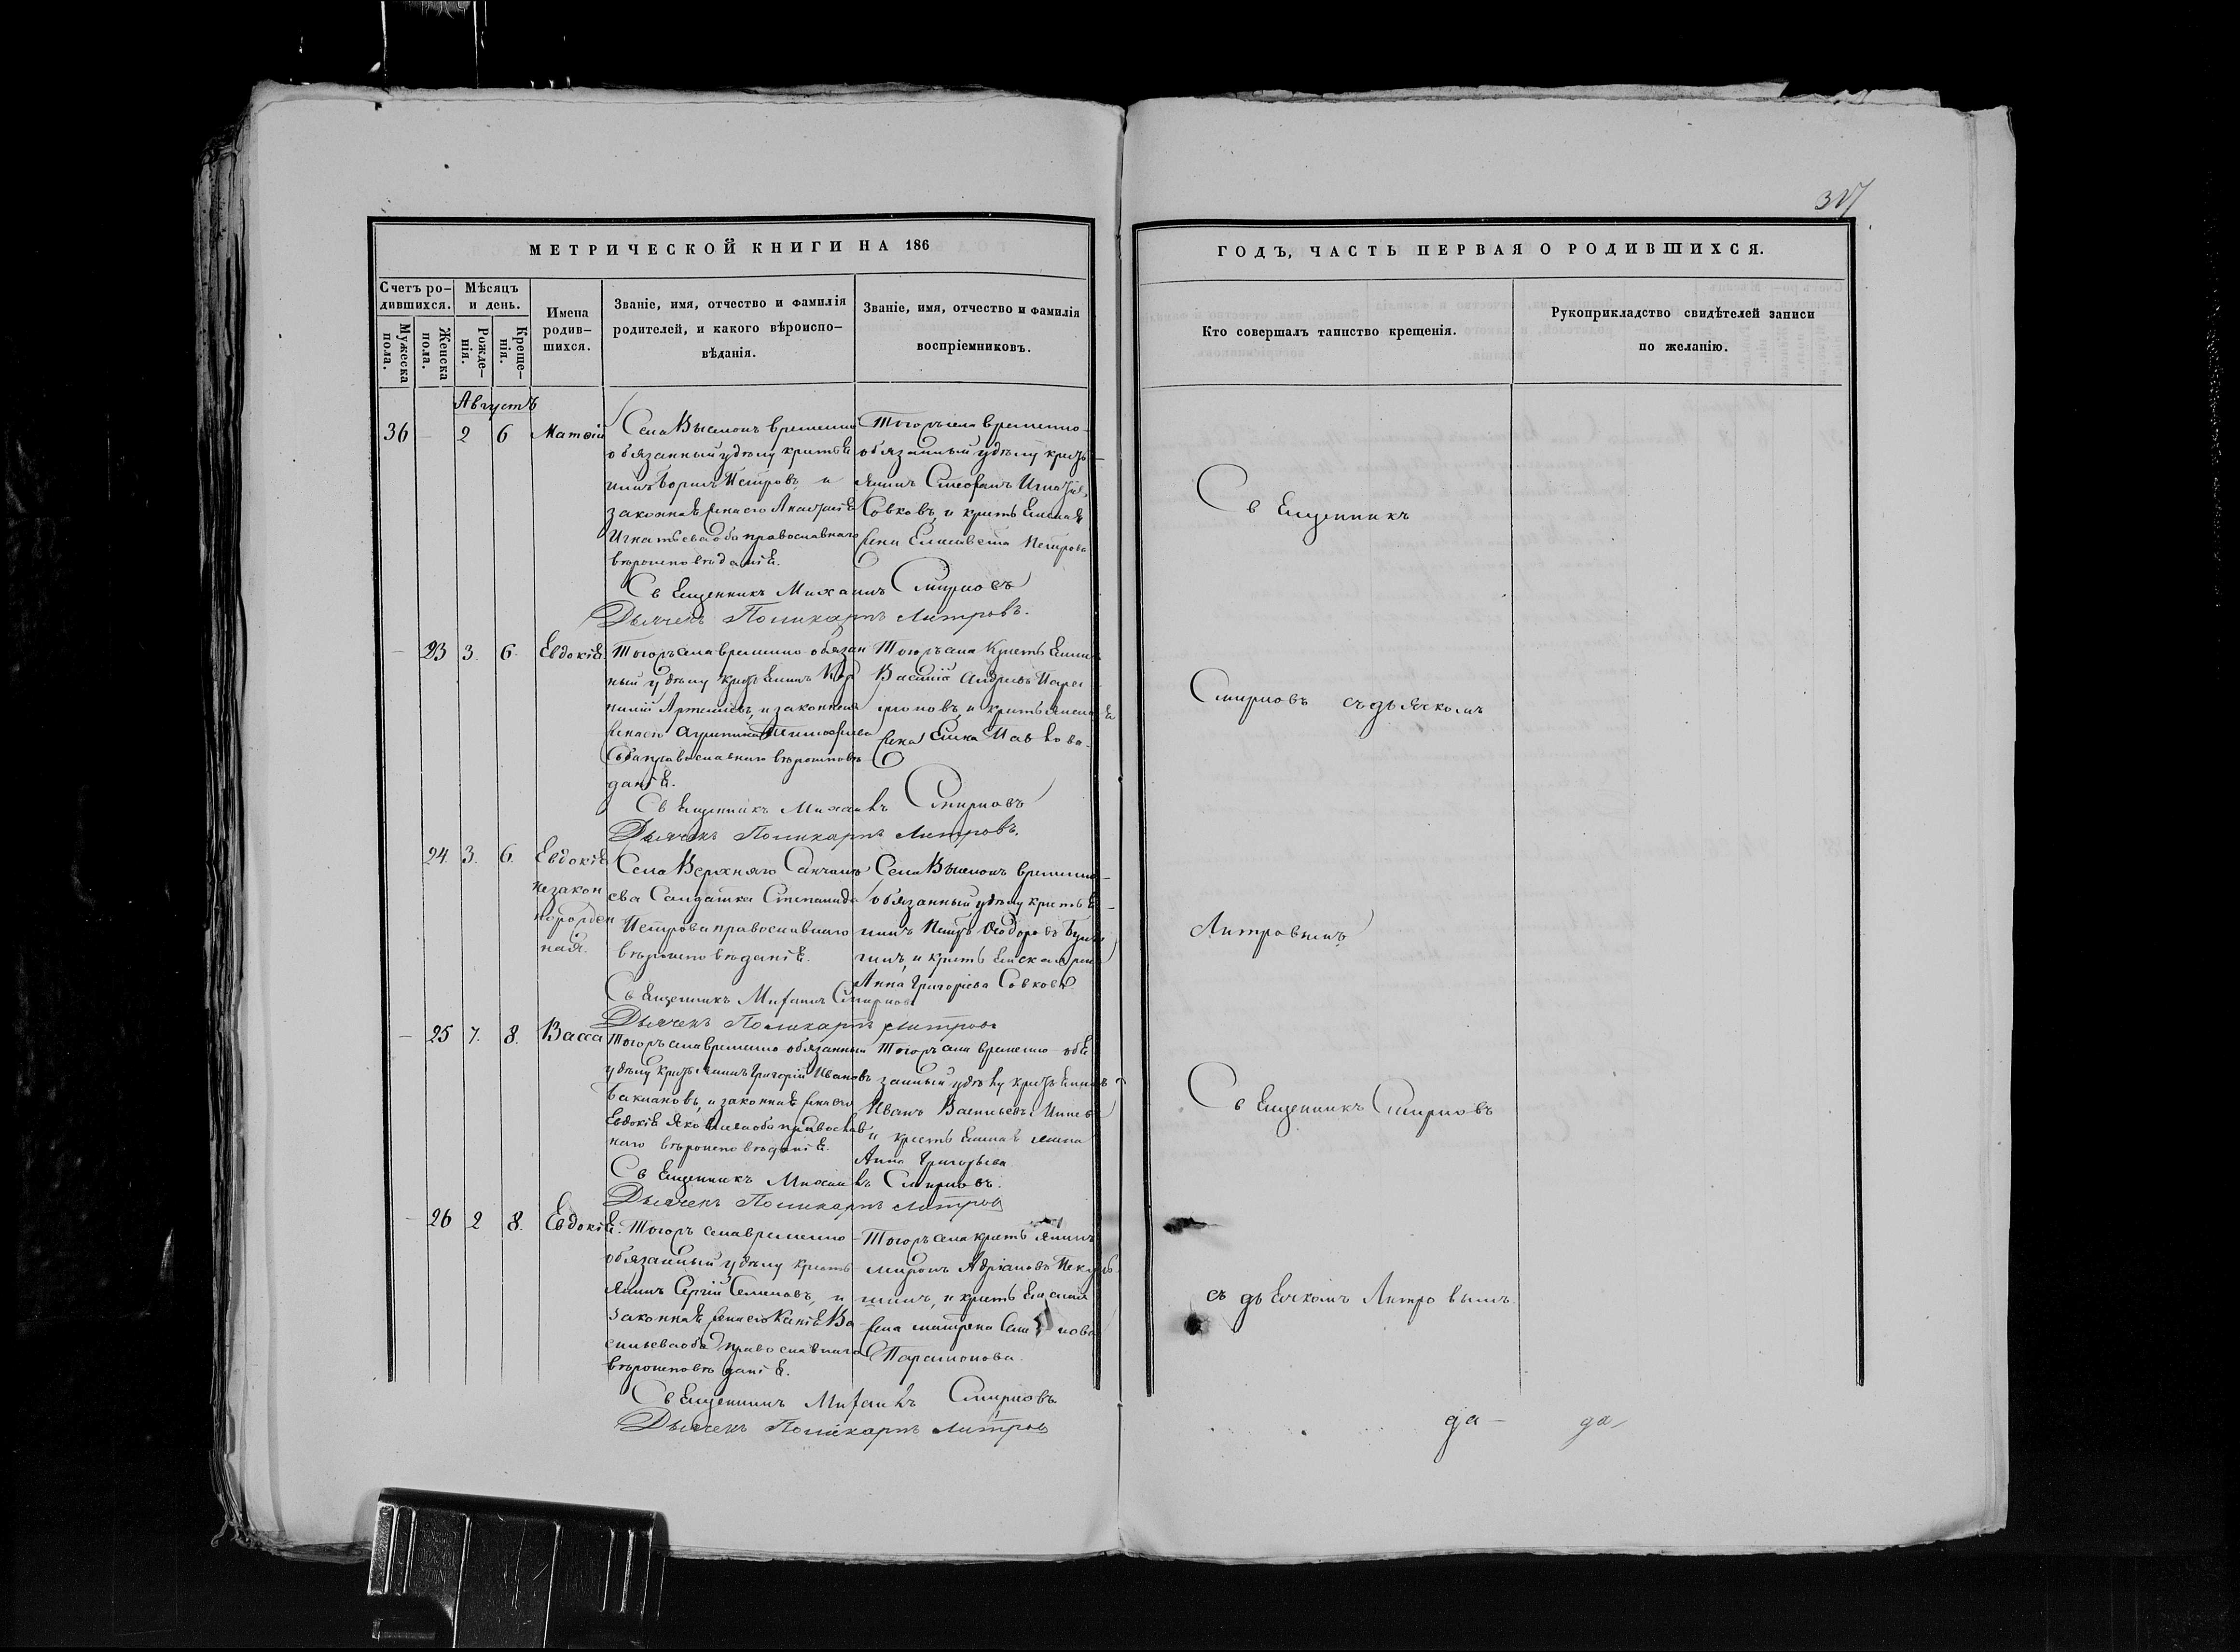 317
МЕТРИЧЕСКОЙ КНИГИ НА 186
ГОДЪ, ЧАСТЬ ПЕРВАЯ О РОДИВШИХСЯ.
Счетъ ро-
дившихся.
Мужеска
пола.
Женска
пола.
Мѣсяцъ
и день.
Рожде-
нія.
Креще-
нія.
Имена
родив-
шихся.
Званіе, имя, отчество и фамилія
родителей, и какого вѣроиспо-
вѣданія.
Званіе, имя, отчество и фамилія
воспріемниковъ.
Кто совершалъ таинство крещенія.
Рукоприкладство свидѣтелей записи
по желанію.
Августъ
36 2 6 Матѳій
Села временно
обязанный удѣлу кресть
Борисъ Петровъ и
законная жена его
Игнатьева оба православнаго
вѣроисповѣданія.
Тогожъ села временно-
обязанный удѣлу кресть-
янинъ Стефанъ
Совковъ, и крестьянская
жена Елисавета Петрова
Священникъ Михаилъ Смирновъ
Дьячекъ Поликарпъ Литровъ.
23 3. 6. Евдокія.
Тогожъ села временно обязан
ный удѣлу крестьянинъ Кор
нилій Артемьевъ, и законная
жена его
оба православнаго вѣроисповѣ
данія.
Тогожъ села крестьянинъ
Василій Андреевъ Пара
моновъ, и крестьянская
жена
Священникъ Михаилъ Смирновъ
Дьячекъ Поликарпъ Литровъ.
24 3. 6. Евдокія
незакон
норожден
ная.
Села Верхняго
ева Солдатка Степанида
Петрова православнаго
вѣроисповѣданія.
Села временно-
обязанный удѣлу крестья-
нинъ Петръ Ѳедоровъ
и крестьянская
Анна Григорьева Совкова
Священникъ Михаилъ Смирновъ
Дьячекъ Поликарпъ Литровъ
25 7. 8. Васса
Тогожъ села временно обязанный
удѣлу крестьянинъ Григорій Ивановъ
и законная жена его
Евдокія Яковлева оба православ
наго вѣроисповѣданія.
Тогожъ села временно-обя
занный удѣлу крестьянинъ
Иванъ Васильевъ
и крестьянская жена
Анна Григорьева
Священникъ Михаилъ Смирновъ.
Дьячекъ Поликарпъ Литровъ
26 2 8. Евдокія.
Тогожъ села временно-
обязанный удѣлу кресть
янинъ Сергій Семеновъ, и
законная жена его Ксенія Ва
сильева оба православнаго
вѣроисповѣданія.
Тогожъ села крестьянинъ
Миронъ Адріановъ
шинъ, и крестьянская
жена Матрена
Парамонова.
Священникъ Михаилъ Смирновъ
Дьячекъ Поликарпъ Литровъ
Священникъ
Смирновъ съ дьячкомъ
Литровымъ
Священникъ Смирновъ
съ дьячкомъ Литровымъ
да - да